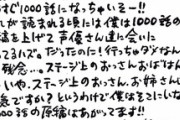 すぐ1000話になっちゃいそー!!
れが読まれる頃には僕は1000話の
稿を上げて声優さん達に会いに
ってるハズ。だったのに!行っちゃダメなん
残念…。ステージ上のおっさんおばさん
いや、ステージ上のお兄さん、お姉さんに
急ですか?というわけで僕はそこにいな
00話の原稿にあがってます!!